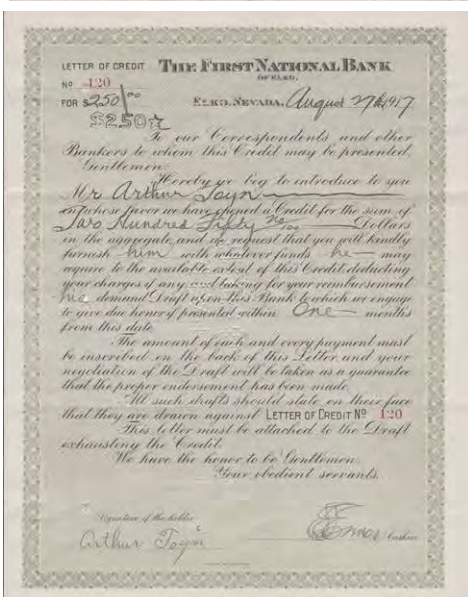 LETTER OF CREDIT THE FIRST NATIONAL BANK
OF ELKO.
No 120
FOR $250/00 ELKO, NEVADA, August 27th 1917
$250
To our Correspondents and other
Bankers to whom this Credit may be presented,
Gentlemen:
Hereby we beg to introduce to you
Mr Arthur Toyn
in whose favor we have opened a Credit for the sum of
Two Hundred Fifty no/100 Dollars
in the aggregate, and we request that you will kindly
furnish him with whatever funds he may
require to the available extent of this Credit, deducting
your charges if any and taking for your reimbursement
his demand Draft upon this Bank to which we engage
to give due honor if presented within One months
from this date.
The amount of each and every payment must
be inscribed on the back of this Letter, and your
negotiation of the Draft will be taken as a guarantee
that the proper endorsement has been made.
All such drafts should state on their face
that they are drawn against LETTER OF CREDIT No 120
This letter must be attached to the Draft
exhausting the Credit.
We have the honor to be Gentlemen
Your obedient servants.
Signature of the holder
Arthur Toyn
Cashier